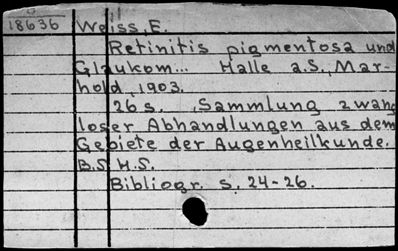 18636 Weiss, E.
Retinitis pigmentosa und
Glaukom... Halle a.S., Mar-
hold, 1903.
26 s. (Sammlung zwang
loser Abhandlungen aus dem
Gebiete der Augenheilkunde.
B.5 H.5.
Bibliogr. s. 24-26.